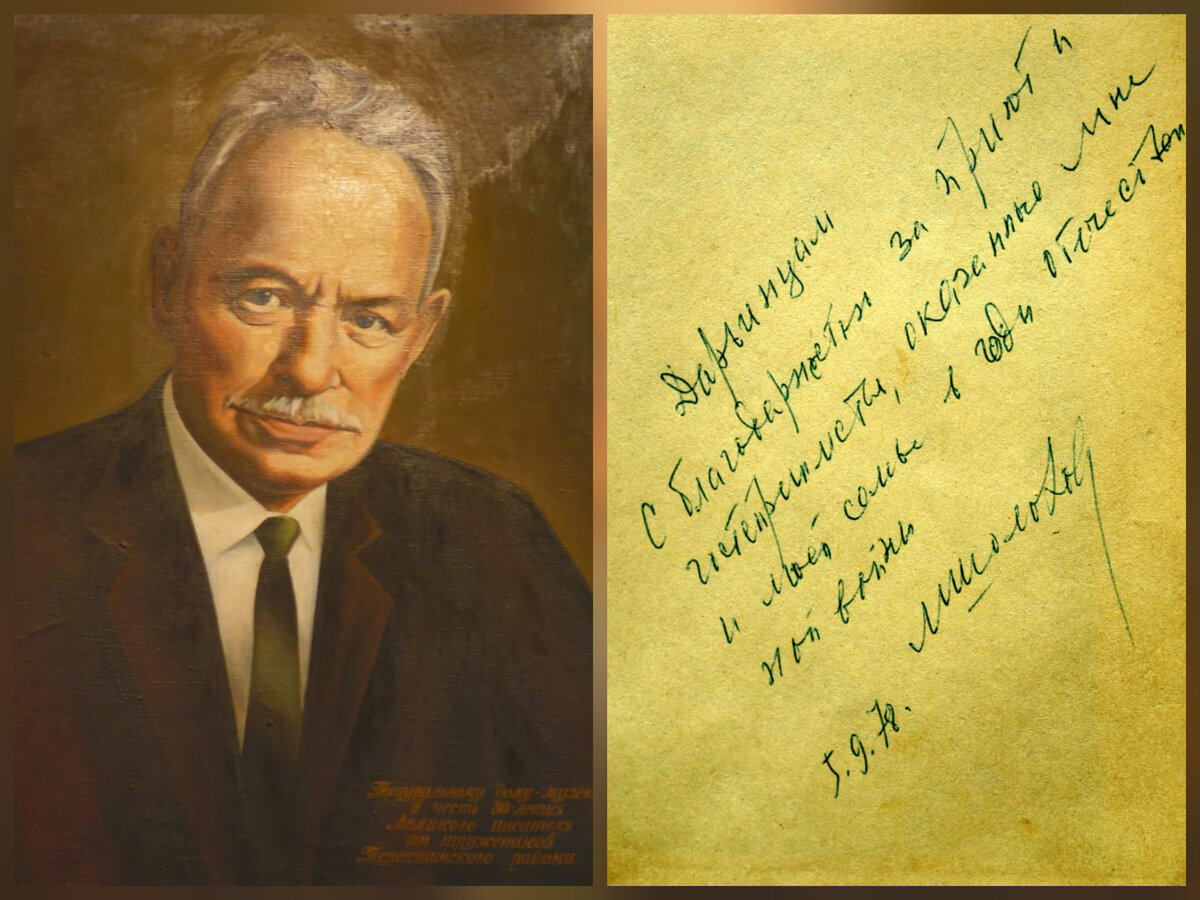 Приуральному дому-музею
в честь 80-летия
Великого писателя
от тружеников
Теректинского района.
Дарьинцам
С благодарностью за приют и
гостеприимство, оказанные мне
и моей семье в годы отечествен
ной войны
МШолохов
5.9.78.